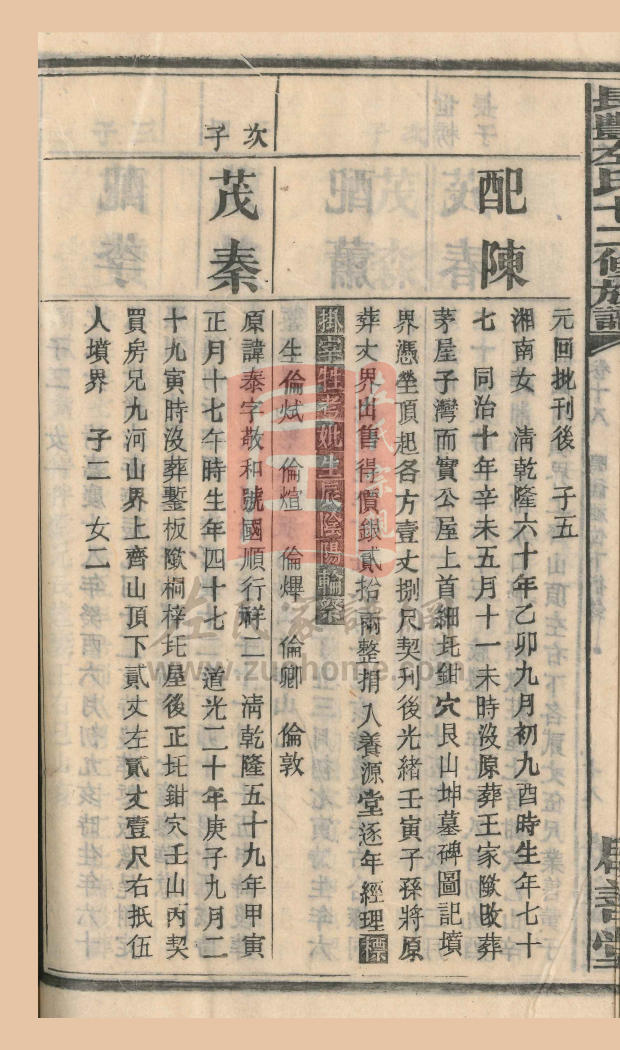 長豐左氏十二修族譜
元回批刊後　子五
配陳
湘南女　清乾隆六十年乙卯九月初九酉時生年七十
七　同治十年辛未五月十一未時沒原葬王家墩改葬
茅屋子灣而實公屋上首細圫鉗穴艮山坤墓碑圖記墳
界憑塋頂起各方壹丈捌尺契刊後光緒壬寅子孫將原
葬丈界出售得價銀貳拾兩整捐入養源堂逐年經理標
掛宰牲考妣生辰陰陽輪祭
生倫烒　倫煊　倫熚　倫卿　倫敦
次子
茂秦
原諱泰字敬和號國順行祥二　清乾隆五十九年甲寅
正月十七午時生年四十七　道光二十年庚子九月二
十九寅時沒葬鏨板墩桐梓圫屋後正圫鉗穴壬山丙契
買房兄九河山界上齊山頂下貳丈左貳丈壹尺右抵伍
人墳界　子二　女二
www.zuohome.com